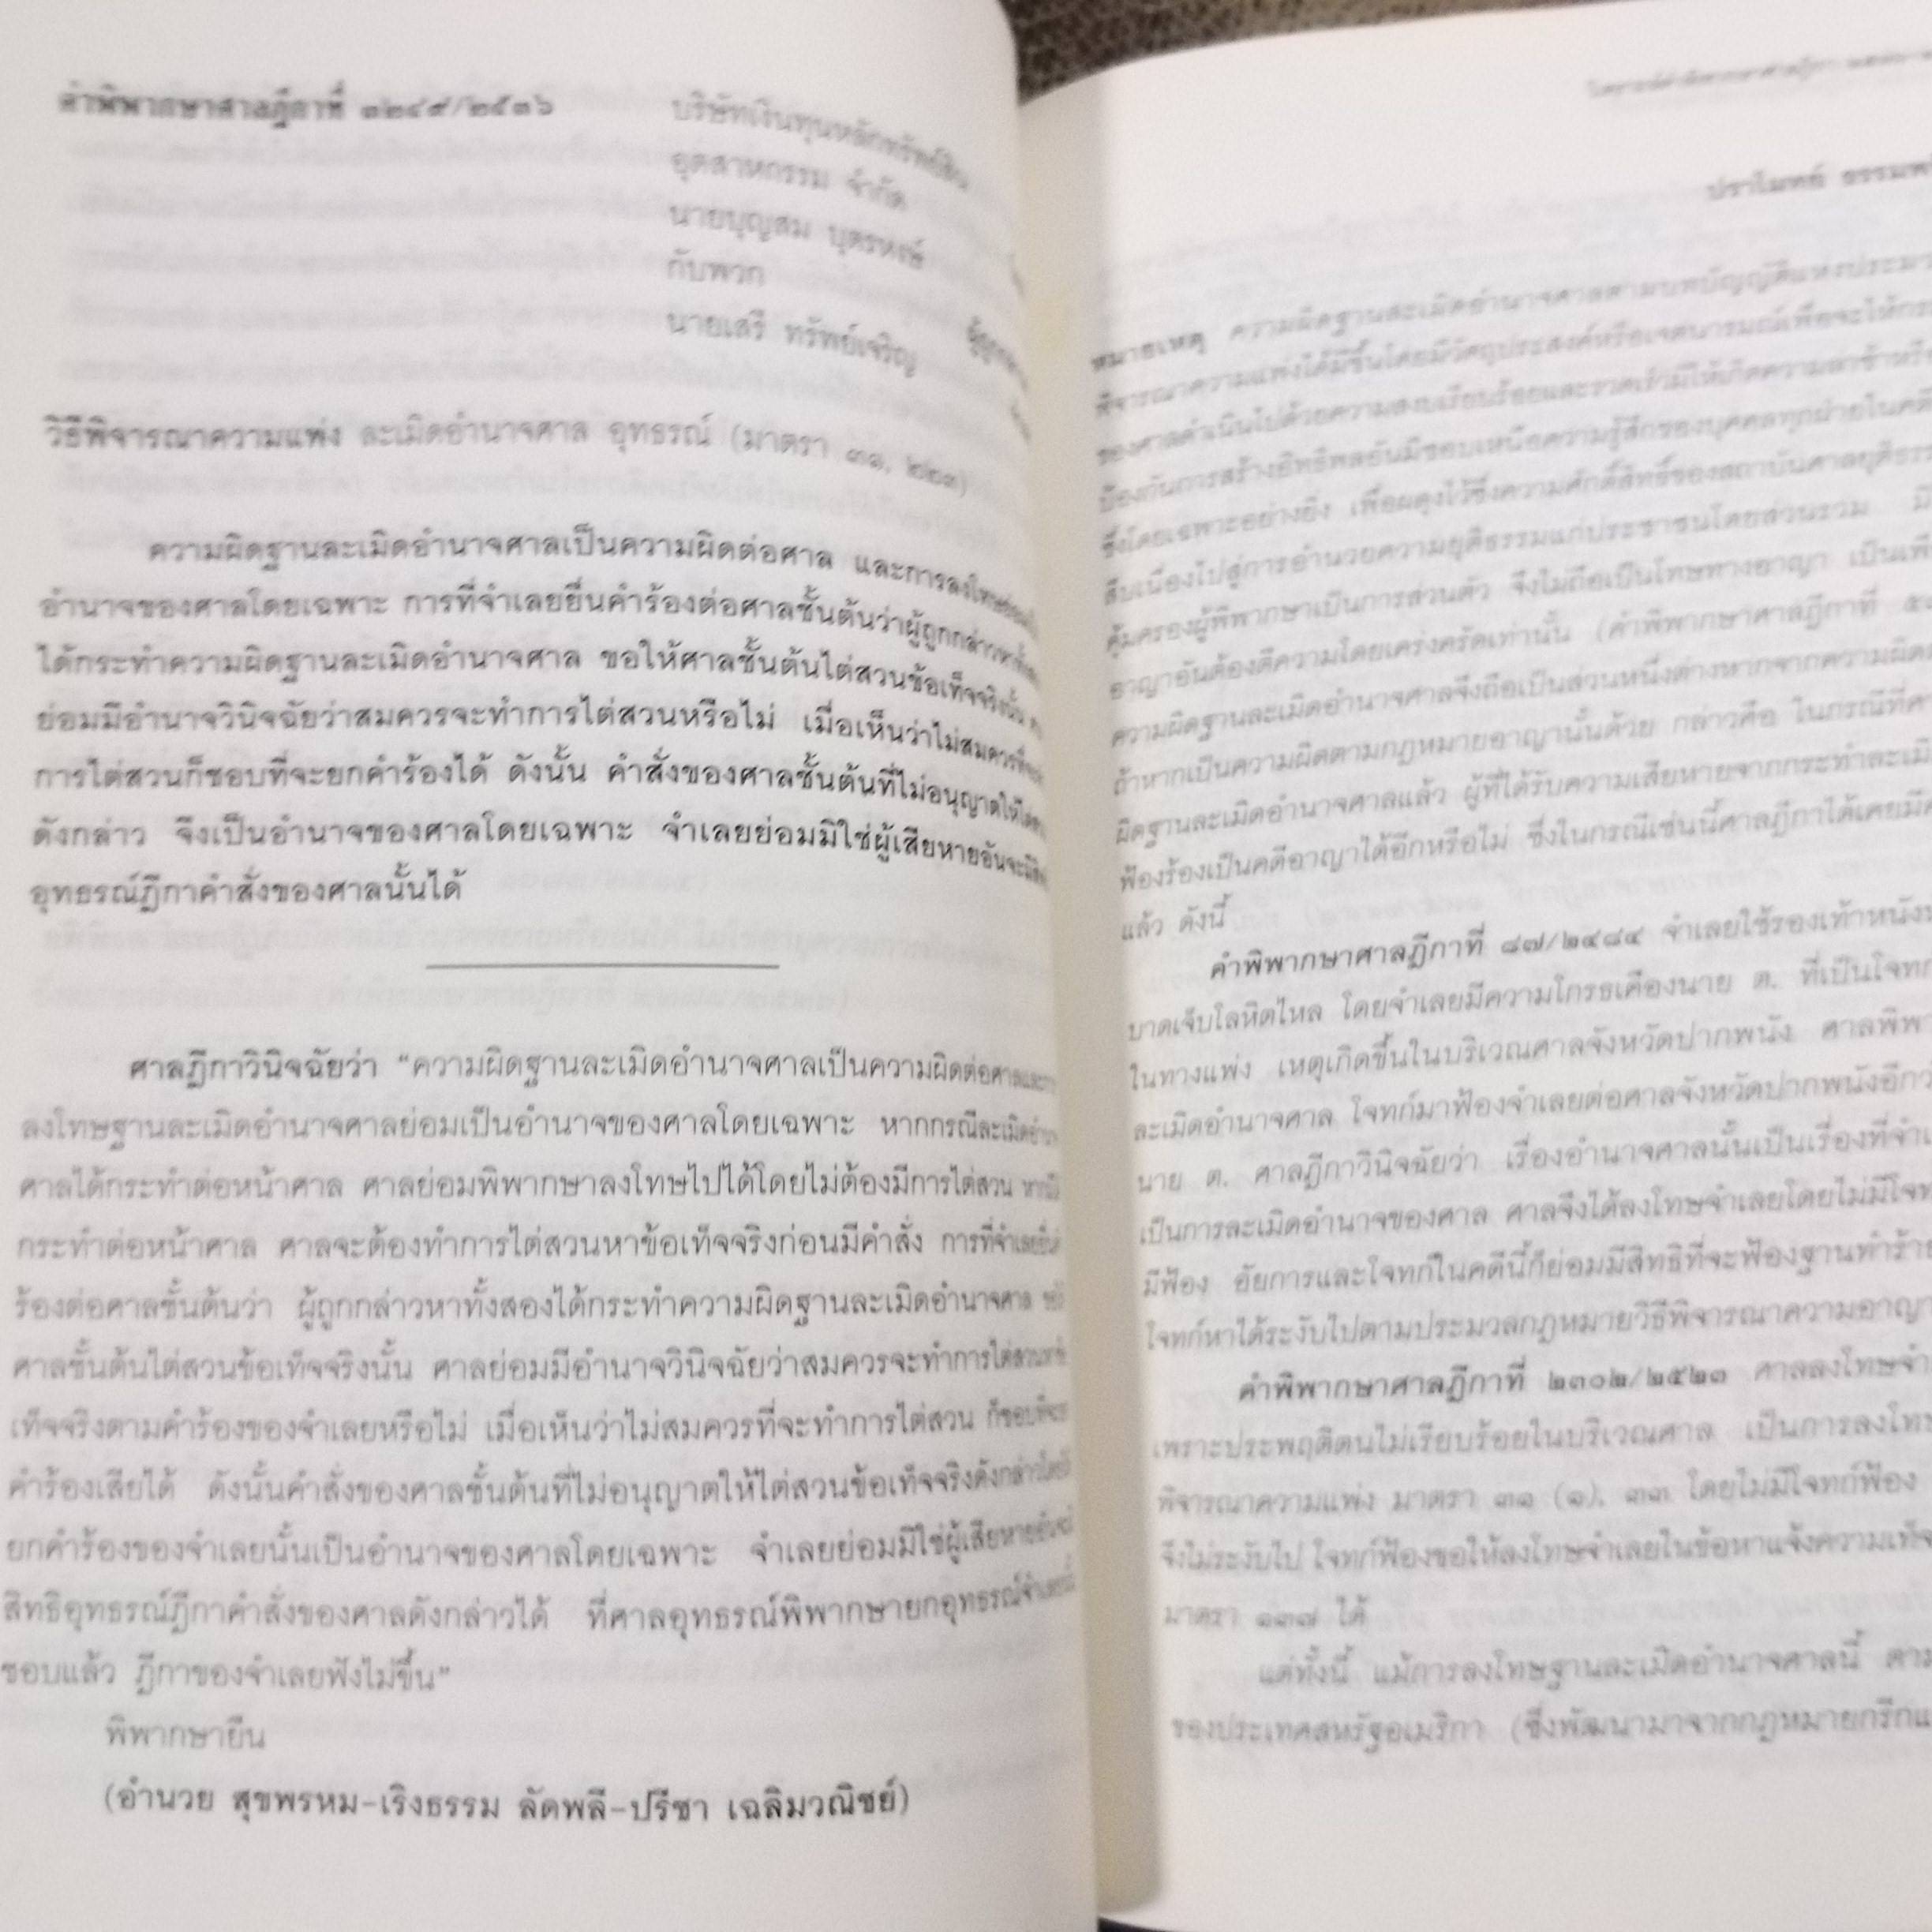 คำพิพากษาศาลฎีกาที่ ๑๒๔๙/๒๕๓๖
บริษัทเงินทุนหลักทรัพย์สิน
อุตสาหกรรม จำกัด
นายบุญสม บุตรหงษ์
กับพวก
นายเสรี ทรัพย์เจริญ
วิธีพิจารณาความแพ่ง ละเมิดอำนาจศาล อุทธรณ์ (มาตรา ๓๑, ๒๒๓)
ความผิดฐานละเมิดอำนาจศาลเป็นความผิดต่อศาล และการลงโทษย่อมเป็น
อำนาจของศาลโดยเฉพาะ การที่จำเลยยื่นคำร้องต่อศาลชั้นต้นว่าผู้ถูกกล่าวหาทั้งสอง
ได้กระทำความผิดฐานละเมิดอำนาจศาล ขอให้ศาลชั้นต้นไต่สวนข้อเท็จจริงนั้น
ย่อมมีอำนาจวินิจฉัยว่าสมควรจะทำการไต่สวนหรือไม่ เมื่อเห็นว่าไม่สมควรที่จะทำ
การไต่สวนก็ชอบที่จะยกคำร้องได้ ดังนั้น คำสั่งของศาลชั้นต้นที่ไม่อนุญาตให้ไต่สวน
ดังกล่าว จึงเป็นอำนาจของศาลโดยเฉพาะ จำเลยย่อมมิใช่ผู้เสียหายอันจะมีสิทธิ
อุทธรณ์ฎีกาคำสั่งของศาลนั้นได้
ศาลฎีกาวินิจฉัยว่า "ความผิดฐานละเมิดอำนาจศาลเป็นความผิดต่อศาลและการ
ลงโทษฐานละเมิดอำนาจศาลย่อมเป็นอำนาจของศาลโดยเฉพาะ หากกรณีละเมิดอำนาจ
ศาลได้กระทำต่อหน้าศาล ศาลย่อมพิพากษาลงโทษไปได้โดยไม่ต้องมีการไต่สวน หากมิได้
กระทำต่อหน้าศาล ศาลจะต้องทำการไต่สวนหาข้อเท็จจริงก่อนมีคำสั่ง การที่จำเลยยื่นคำ
ร้องต่อศาลชั้นต้นว่า ผู้ถูกกล่าวหาทั้งสองได้กระทำความผิดฐานละเมิดอำนาจศาล ขอให้
ศาลชั้นต้นไต่สวนข้อเท็จจริงนั้น ศาลย่อมมีอำนาจวินิจฉัยว่าสมควรจะทำการไต่สวนหาข้อ
เท็จจริงตามคำร้องของจำเลยหรือไม่ เมื่อเห็นว่าไม่สมควรที่จะทำการไต่สวน ก็ชอบที่จะยก
คำร้องเสียได้ ดังนั้นคำสั่งของศาลชั้นต้นที่ไม่อนุญาตให้ไต่สวนข้อเท็จจริงดังกล่าวโดยให้
ยกคำร้องของจำเลยนั้นเป็นอำนาจของศาลโดยเฉพาะ จำเลยย่อมมิใช่ผู้เสียหายอันจะมี
สิทธิอุทธรณ์ฎีกาคำสั่งของศาลดังกล่าวได้ ที่ศาลอุทธรณ์พิพากษายกอุทธรณ์จำเลยนั้น
ชอบแล้ว ฎีกาของจำเลยฟังไม่ขึ้น"
พิพากษายืน
(อำนวย สุขพรหม-เริงธรรม ลัดพลี-ปรีชา เฉลิมวณิชย์)
ปราโมทย์
หมายเหตุ ความผิดฐานละเมิดอำนาจศาลตามบทบัญญัติแห่งประมวล
พิจารณาความแพ่งได้มีขึ้นโดยมีวัตถุประสงค์หรือเจตนารมณ์เพื่อจะให้
ของศาลดำเนินไปด้วยความสงบเรียบร้อยและรวดเร็วมิให้เกิดความล่าช้าหรือ
ป้องกันการสร้างอิทธิพลอันมิชอบเหนือความรู้สึกของบุคคลทุกฝ่ายในคดี
ซึ่งโดยเฉพาะอย่างยิ่ง เพื่อผดุงไว้ซึ่งความศักดิ์สิทธิ์ของสถาบันศาลยุติธรรม
สืบเนื่องไปสู่การอำนวยความยุติธรรมแก่ประชาชนโดยส่วนรวม
คุ้มครองผู้พิพากษาเป็นการส่วนตัว จึงไม่ถือเป็นโทษทางอาญา เป็นเพียง
อาญาอันต้องตีความโดยเคร่งครัดเท่านั้น (คำพิพากษาศาลฎีกาที่
ความผิดฐานละเมิดอำนาจศาลจึงถือเป็นส่วนหนึ่งต่างหากจากความผิด
ถ้าหากเป็นความผิดตามกฎหมายอาญานั้นด้วย กล่าวคือ ในกรณีที่
ผิดฐานละเมิดอำนาจศาลแล้ว ผู้ที่ได้รับความเสียหายจากกระทำละเมิด
ฟ้องร้องเป็นคดีอาญาได้อีกหรือไม่ ซึ่งในกรณีเช่นนี้ศาลฎีกาได้เคยมี
แล้ว ดังนี้
คำพิพากษาศาลฎีกาที่ ๘๗/๒๔๘๔ จำเลยใช้รองเท้าหนัง
บาดเจ็บโลหิตไหล โดยจำเลยมีความโกรธเคืองนาย ต. ที่เป็นโจทก์
ในทางแพ่ง เหตุเกิดขึ้นในบริเวณศาลจังหวัดปากพนัง ศาลพิพา
ละเมิดอำนาจศาล โจทก์มาฟ้องจำเลยต่อศาลจังหวัดปากพนังอีก
นาย ต. ศาลฎีกาวินิจฉัยว่า เรื่องอำนาจศาลนั้นเป็นเรื่องที่
เป็นการละเมิดอำนาจของศาล ศาลจึงได้ลงโทษจำเลยโดยไม่มีโจทก์
มีฟ้อง อัยการและโจทก์ในคดีนี้ก็ย่อมมีสิทธิที่จะฟ้องฐานทำร้าย
โจทก์หาได้ระงับไปตามประมวลกฎหมายวิธีพิจารณาความอาญา
คำพิพากษาศาลฎีกาที่ ๒๓๐๒/๒๕๒๓ ศาลลงโทษ
เพราะประพฤติตนไม่เรียบร้อยในบริเวณศาล เป็นการลงโทษ
พิจารณาความแพ่ง มาตรา ๓๑ (๑), ๓๓ โดยไม่มีโจทก์ฟ้อง
จึงไม่ระงับไป โจทก์ฟ้องขอให้ลงโทษจำเลยในข้อหาแจ้งความเท็จ
มาตรา ๑๓๗ ได้
แต่ทั้งนี้ แม้การลงโทษฐานละเมิดอำนาจศาลนี้ ตาม
ของประเทศสหรัฐอเมริกา (ซึ่งพัฒนามาจากกฎหมายกรีก